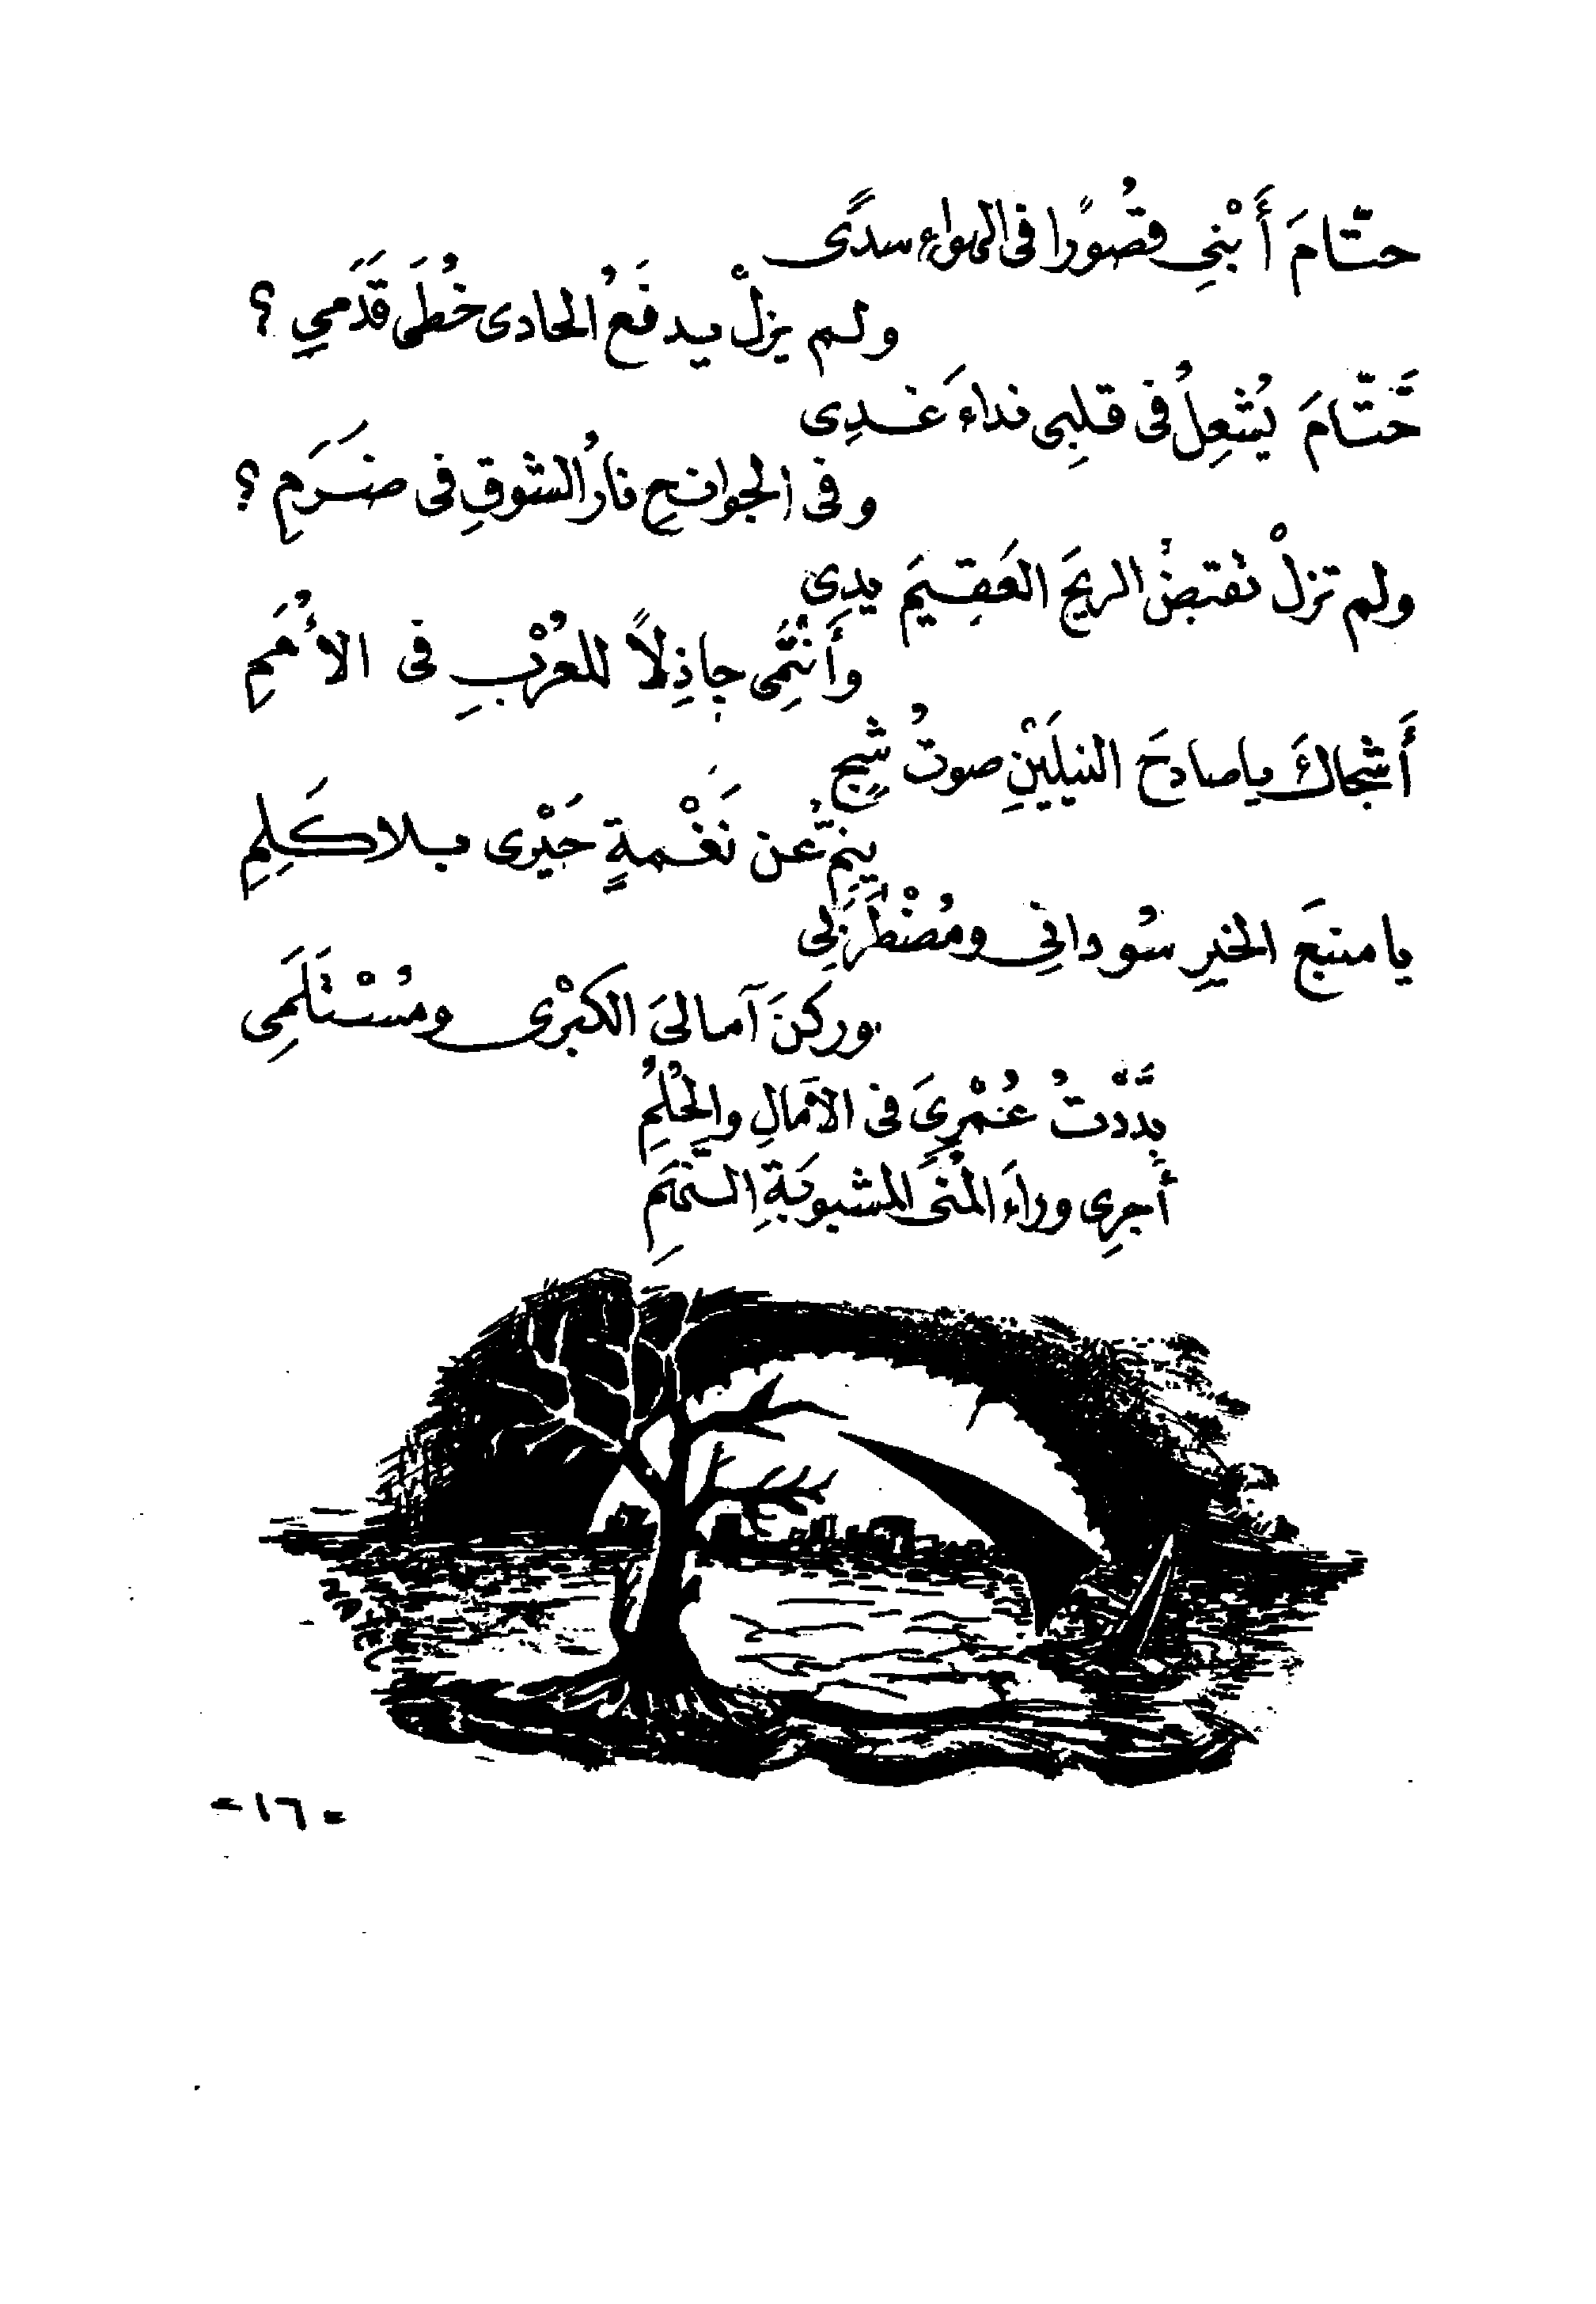 حتّامَ أَبْنِي قصُورًا فى الهواء سدًى
ولم يزلْ يدفَعُ الحادى خُطَى قَدَمِي ؟
حَتّامَ يُشعِلُ فى قلبِى نداءَ غدِى
وفى الجوانحِ نارُ الشوقِ فى ضَرَمِ ؟
ولم تزلْ تقبضُ الريحَ العَقِيمَ يدِى
وأَنْتَمِى جاذِلاً للعُرْبِ فى الأُمَمِ
أَشجاكَ ياصادحَ النيلَيْنِ صوتُ شجٍ
ينِمُّ عن نَغْمةٍ حَيْرى بلا كَلِمِ
يا منبعَ الخيرِ سُودانِي ومُضْطَرَبِى
وركنَ آمالىَ الكبْرى ومُسْتَلَمِى
بدَّدْتُ عُمْرِىَ فى الآمالِ والحُلُمِ
أَجرِى وراءَ المُنَى المشبوبَةِ النَّهَمِ
- ١٦ -